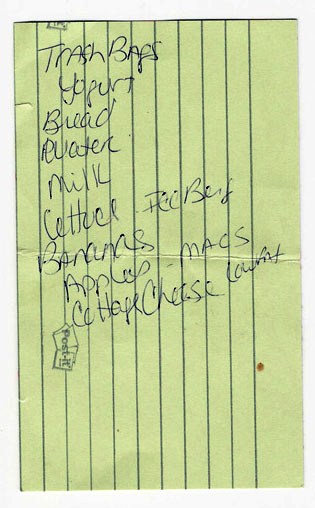 Trash Bags
Yogurt
Bread
Water
Milk
Lettuce - Ice Berg
Bananas
Apples - MACS
Cottage Cheese Lowfat
Post-it